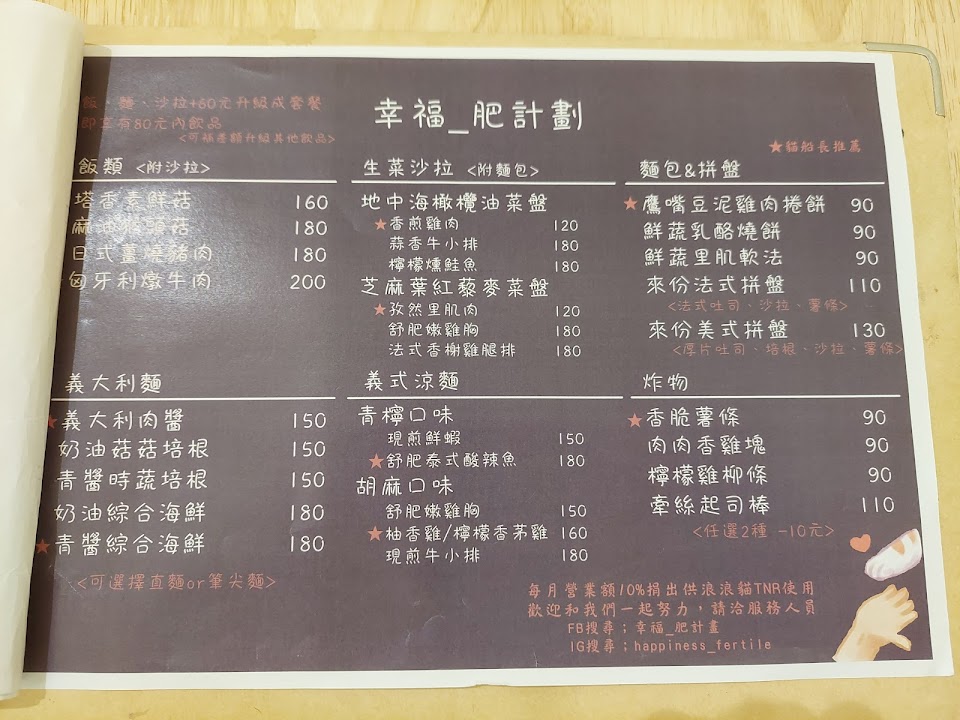 飯、麵、沙拉+60元升級成套餐
即享有80元內飲品
<可補差額升級其他飲品>
幸福_肥計劃
★貓船長推薦
飯類 <附沙拉>
塔香素鮮菇 160
麻油猴頭菇 180
日式薑燒豬肉 180
匈牙利燉牛肉 200
義大利麵
★義大利肉醬 150
奶油菇菇培根 150
青醬時蔬培根 150
奶油綜合海鮮 180
★青醬綜合海鮮 180
<可選擇直麵or筆尖麵>
生菜沙拉 <附麵包>
地中海橄欖油菜盤
★香煎雞肉 120
蒜香牛小排 180
檸檬燻鮭魚 180
芝麻葉紅藜麥菜盤
★孜然里肌肉 120
舒肥嫩雞胸 180
法式香榭雞腿排 180
義式涼麵
青檸口味
現煎鮮蝦 150
★舒肥泰式酸辣魚 180
胡麻口味
舒肥嫩雞胸 150
★柚香雞/檸檬香茅雞 160
現煎牛小排 180
麵包&拼盤
★鷹嘴豆泥雞肉捲餅 90
鮮蔬乳酪燒餅 90
鮮蔬里肌軟法 90
來份法式拼盤 110
<法式吐司、沙拉、薯條>
來份美式拼盤 130
<厚片吐司、培根、沙拉、薯條>
炸物
★香脆薯條 90
肉肉香雞塊 90
檸檬雞柳條 90
牽絲起司棒 110
<任選2種 -10元>
每月營業額10%捐出供浪浪貓TNR使用
歡迎和我們一起努力，請洽服務人員
FB搜尋；幸福_肥計畫
IG搜尋；happiness_fertile